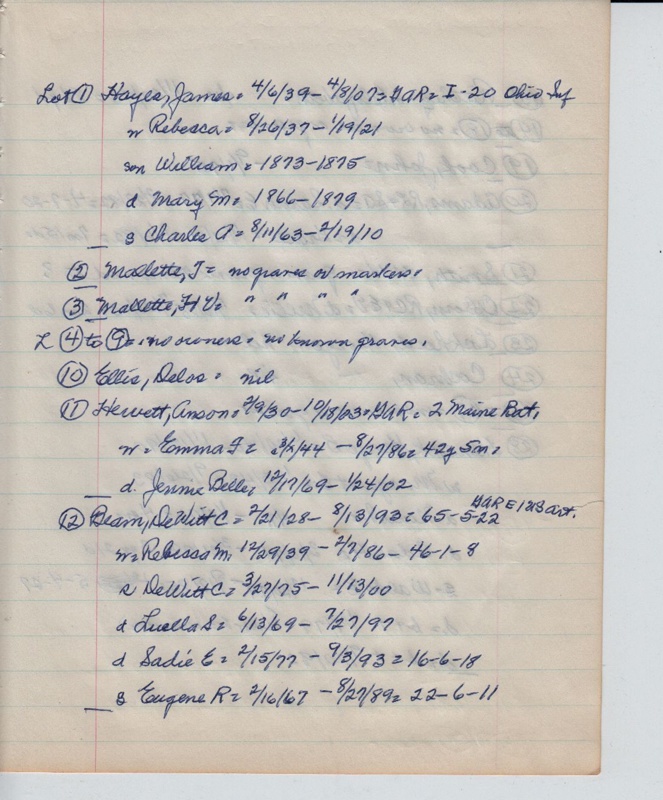 Lot ① Hayes, James = 4/6/39 - 4/8/07 = GAR = I-20 Ohio Inf
w Rebecca = 8/26/37 - 1/19/21
son William = 1873-1875
d Mary M = 1866-1879
s Charles A = 8/11/63 - 2/19/10
② Mallette, J = no graves or markers.
③ Mallette, H V = " " " "
L ④ to ⑨ = no owners = no known graves.
⑩ Ellis, Delos = nil
⑪ Hewett, Anson = 2/9/30 - 10/18/03 = GAR = 2 Maine Bat.
w = Emma F = 3/2/44 - 8/27/86 = 42y 5m =
d. Jennie Belle, 12/17/69 - 1/24/02
⑫ Beam, DeWitt C = 2/21/28 - 8/13/93 = 65-5-22 GAR E 1 art.
w = Rebessa M. 12/29/39 - 2/7/86 - 46-1-8
s DeWitt C = 3/27/75 - 11/13/00
d Luella S = 6/13/69 - 7/27/97
d Sadie E = 2/15/77 - 9/3/93 = 16-6-18
s Eugene R = 2/16/67 - 8/27/89 = 22-6-11